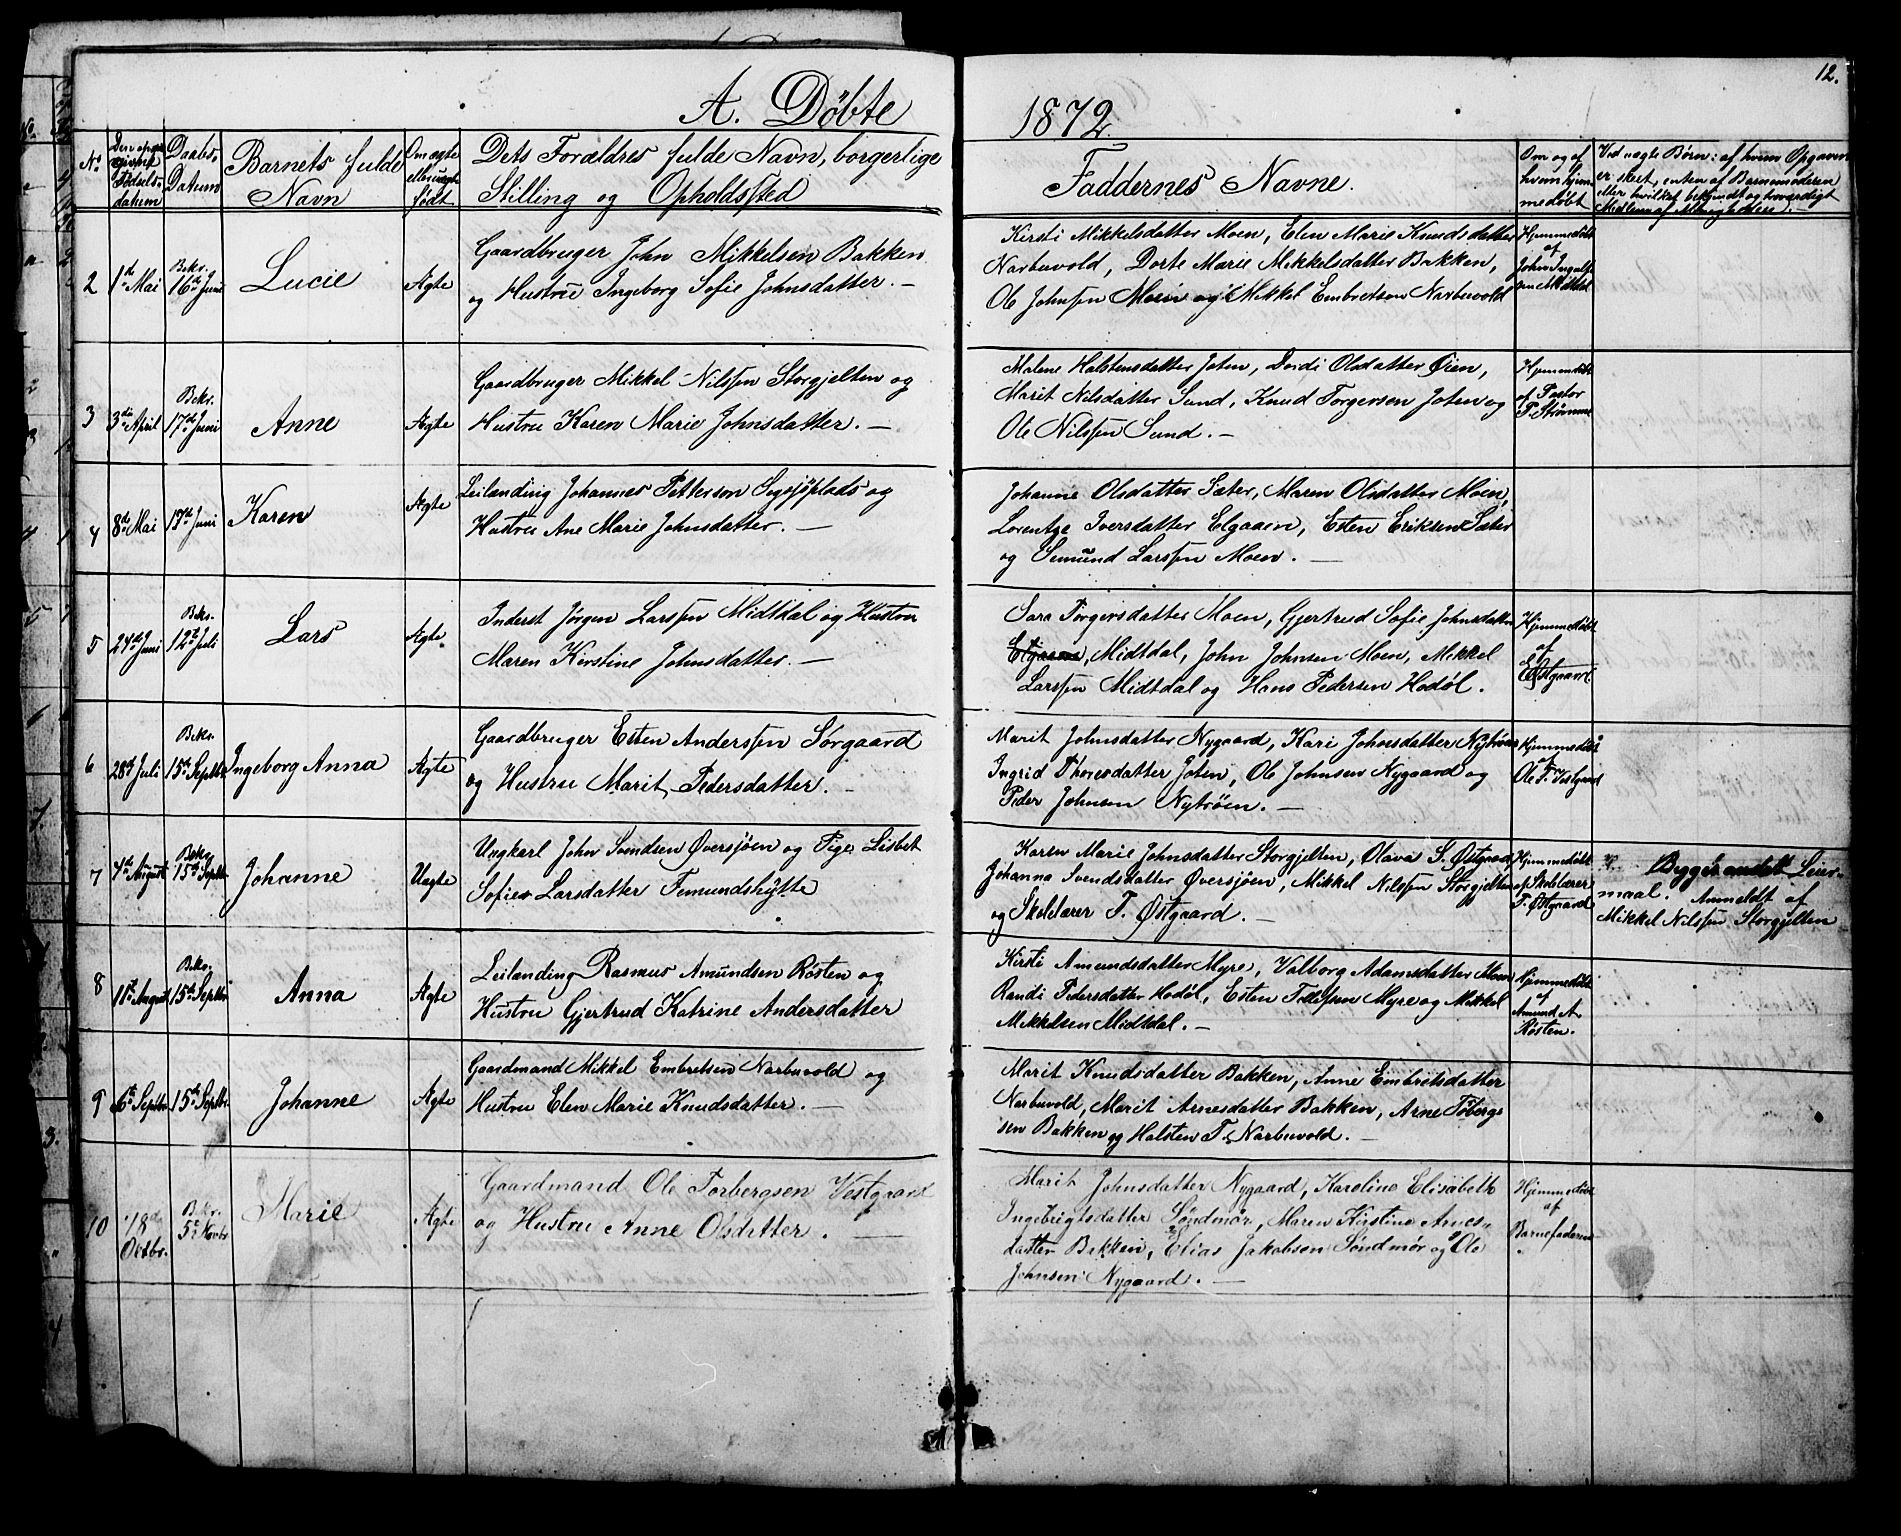 12.
A. Døbte
1872.
No.
Den opgivne Fødselsdatum
Daabs-Datum
Barnets fulde Navn
Om ægte eller uægte født
Dets Forældres fulde Navn, borgerlige
Stilling og Opholdssted
Faddernes Navne.
Om og af hvem hjemmedøbt
Ved uægte Børn: af hvem Opgaven
er skeet, enten af Barnemoderen
eller hvilket bekjendt og troværdigt
Medlem af Menigheden.
2
1ste Mai
Bekr.
16de Juni
Lucie
Ægte
Gaardbruger John Mikkelsen Bakken
og Hustru Ingeborg Sofie Johnsdatter. —
Kirsti Mikkelsdatter Moen, Elen Marie Knudsdatter
Narbuvold, Dorte Marie Mikkelsdatter Bakken,
Ole Johnsen Moen og Mikkel Embretsen Narbuvold
Hjemmedøbt
af
John Ingulf-
3
3die April
Bekr.
17de Juni
Anne
Ægte
Gaardbruger Mikkel Nilssen Storgjelten og
Hustru Karen Marie Johnsdatter. —
Malene Halstensdatter Joten, Dordi Olsdatter Øien,
Marit Nilsdatter Sund, Knud Torgersen Joten og
Ole Nilssen Sund. —
Hjemmedøbt
af Pastor
P. Strømme
4
8de Mai
17de Juni
Karen
Ægte
Leilænding Johannes Petterson Sygsjøplads og
Hustru Ane Marie Johnsdatter. —
Johanne Olsdatter Sæter, Maren Olsdatter Moen,
Lorentze Iversdatter Elgaaen, Esten Eriksen Sæter
og Semund Larssen Moen. —
5
24de Juni
Bekr.
12te Juli
Lars
Ægte
Inderst Jørgen Larssen Midtdal og Hustru
Maren Kirstine Johnsdatter. —
Sara Torgersdatter Moen, Gjertrud Sofie Johnsdatter
Elgaaen, Midtdal, John Johnsen Moen, Mikkel
Larssen Midtdal og Hans Pedersen Hodøl.
Hjemmedøbt
af
E. Østgaard.
6
28de Juli
Bekr.
15de Septbr.
Ingeborg Anna
Ægte
Gaardbruger Esten Anderssen Sørgaard
og Hustru Marit Pedersdatter. —
Marit Johnsdatter Nygaard, Kari Johnsdatter Nytrøen
Ingrid Thoresdatter Joten, Ole Johnsen Nygaard og
Peder Johnsen Nytrøen. —
Hjemmedøbt
af
Ole T. Vestgaard
7
4de August
Bekr.
15de Septbr.
Johanne
Uægte
Ungkarl John Svendsen Øversjøen og Pige Lisbet
Sofie Larsdatter Femundshytte
Karen Marie Johnsdatter Storgjelten, Olava S. Østgaard
Johanna Svendsdatter Øversjøen, Mikkel Nilssen Storgjelten
og Skolelærer T. Østgaard. —
Hjemmedøbt
af Skolelærer
T. Østgaard
Begges andet Leier-
maal. Anmeldt af
Mikkel Nilssen Storgjelten
8
11te August
Bekr.
15de Septbr.
Anna
Ægte
Leilænding Rasmus Amundsen Røsten og
Hustru Gjertrud Katrine Andersdatter
Kirsti Amundsdatter Myre, Valborg Adamsdatter Moen
Randi Pedersdatter Hodøl, Esten Tollefsen Myre og Mikkel
Mikkelsen Midtdal. —
Hjemmedøbt
af
Amund A.
Røsten.
9
6te Septbr.
15de Septbr.
Johanne
Ægte
Gaardmand Mikkel Embretsen Narbuvold og
Hustru Elen Marie Knudsdatter. —
Marit Knudsdatter Bakken, Anne Embretsdatter
Narbuvold, Marit Arnesdatter Bakken, Arne Tøberg-
sen Bakken og Halsten T. Narbuvold. —
10
18de Octbr.
Bekr.
5te Novbr
Marie
Ægte
Gaardmand Ole Torbergsen Vestgaard
og Hustru Anne Olsdatter. —
Marit Johnsdatter Nygaard, Karoline Elisabeth
Ingebrigtsdatter Søndmør, Maren Kirstine Arnes-
datter Bakken, Elias Jakobsen Søndmør og Ole
Johnsen Nygaard. —
Hjemmedøbt
af
Barnefaderen